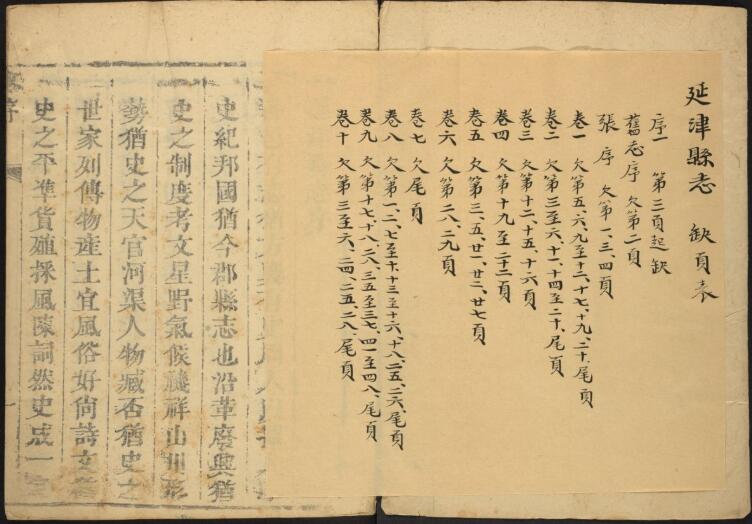 延津縣志 缺頁表
序一 第三頁起缺
舊志序 欠第二頁
張序 欠第一、三、四頁
卷一 欠第五、六、九至十二、十七、十九、二十、尾頁
卷二 欠第三至六、十一、十四至二十、尾頁
卷三 欠第十二、十五、十六頁
卷四 欠第十九至二十二頁
卷五 欠第三、五、廿一、廿二、廿七頁
卷六 欠第二八、二九頁
卷七 欠尾頁
卷八 欠第一、二、七至十、十三至十六、十八、二五、二六、尾頁
卷九 欠第十七、十八、二八、三五至三七、四一至四八、尾頁
卷十 欠第三至六、二四、二五、二八、尾頁
史紀邦國猶今郡縣志也沿革廢興猶
史之制度考文星野氣候禨祥山川形
勢猶史之天官河渠人物臧否猶史之
世家列傳物產土宜風俗好尚詩文
史之平準貨殖採風陳詞然史成一
序